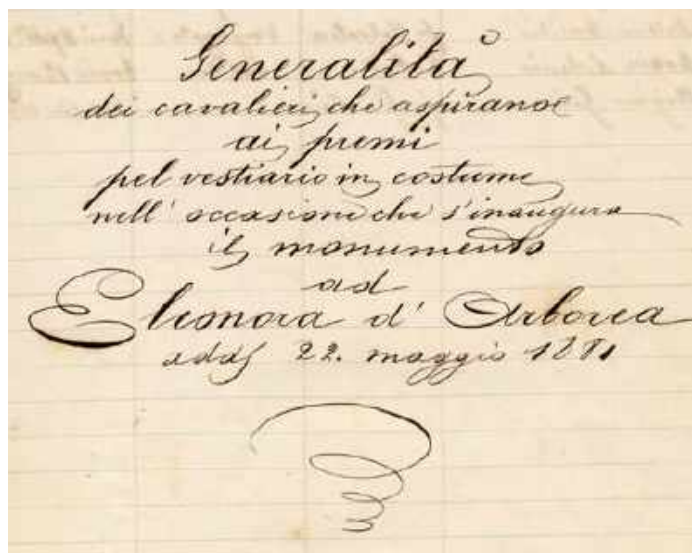 Generalità
dei cavalieri che aspirano
ai premi
pel vestiario in costume
nell' occasione che s'inaugura
il monumento
ad
Eleonora d' Arborea
addì 22. maggio 1881